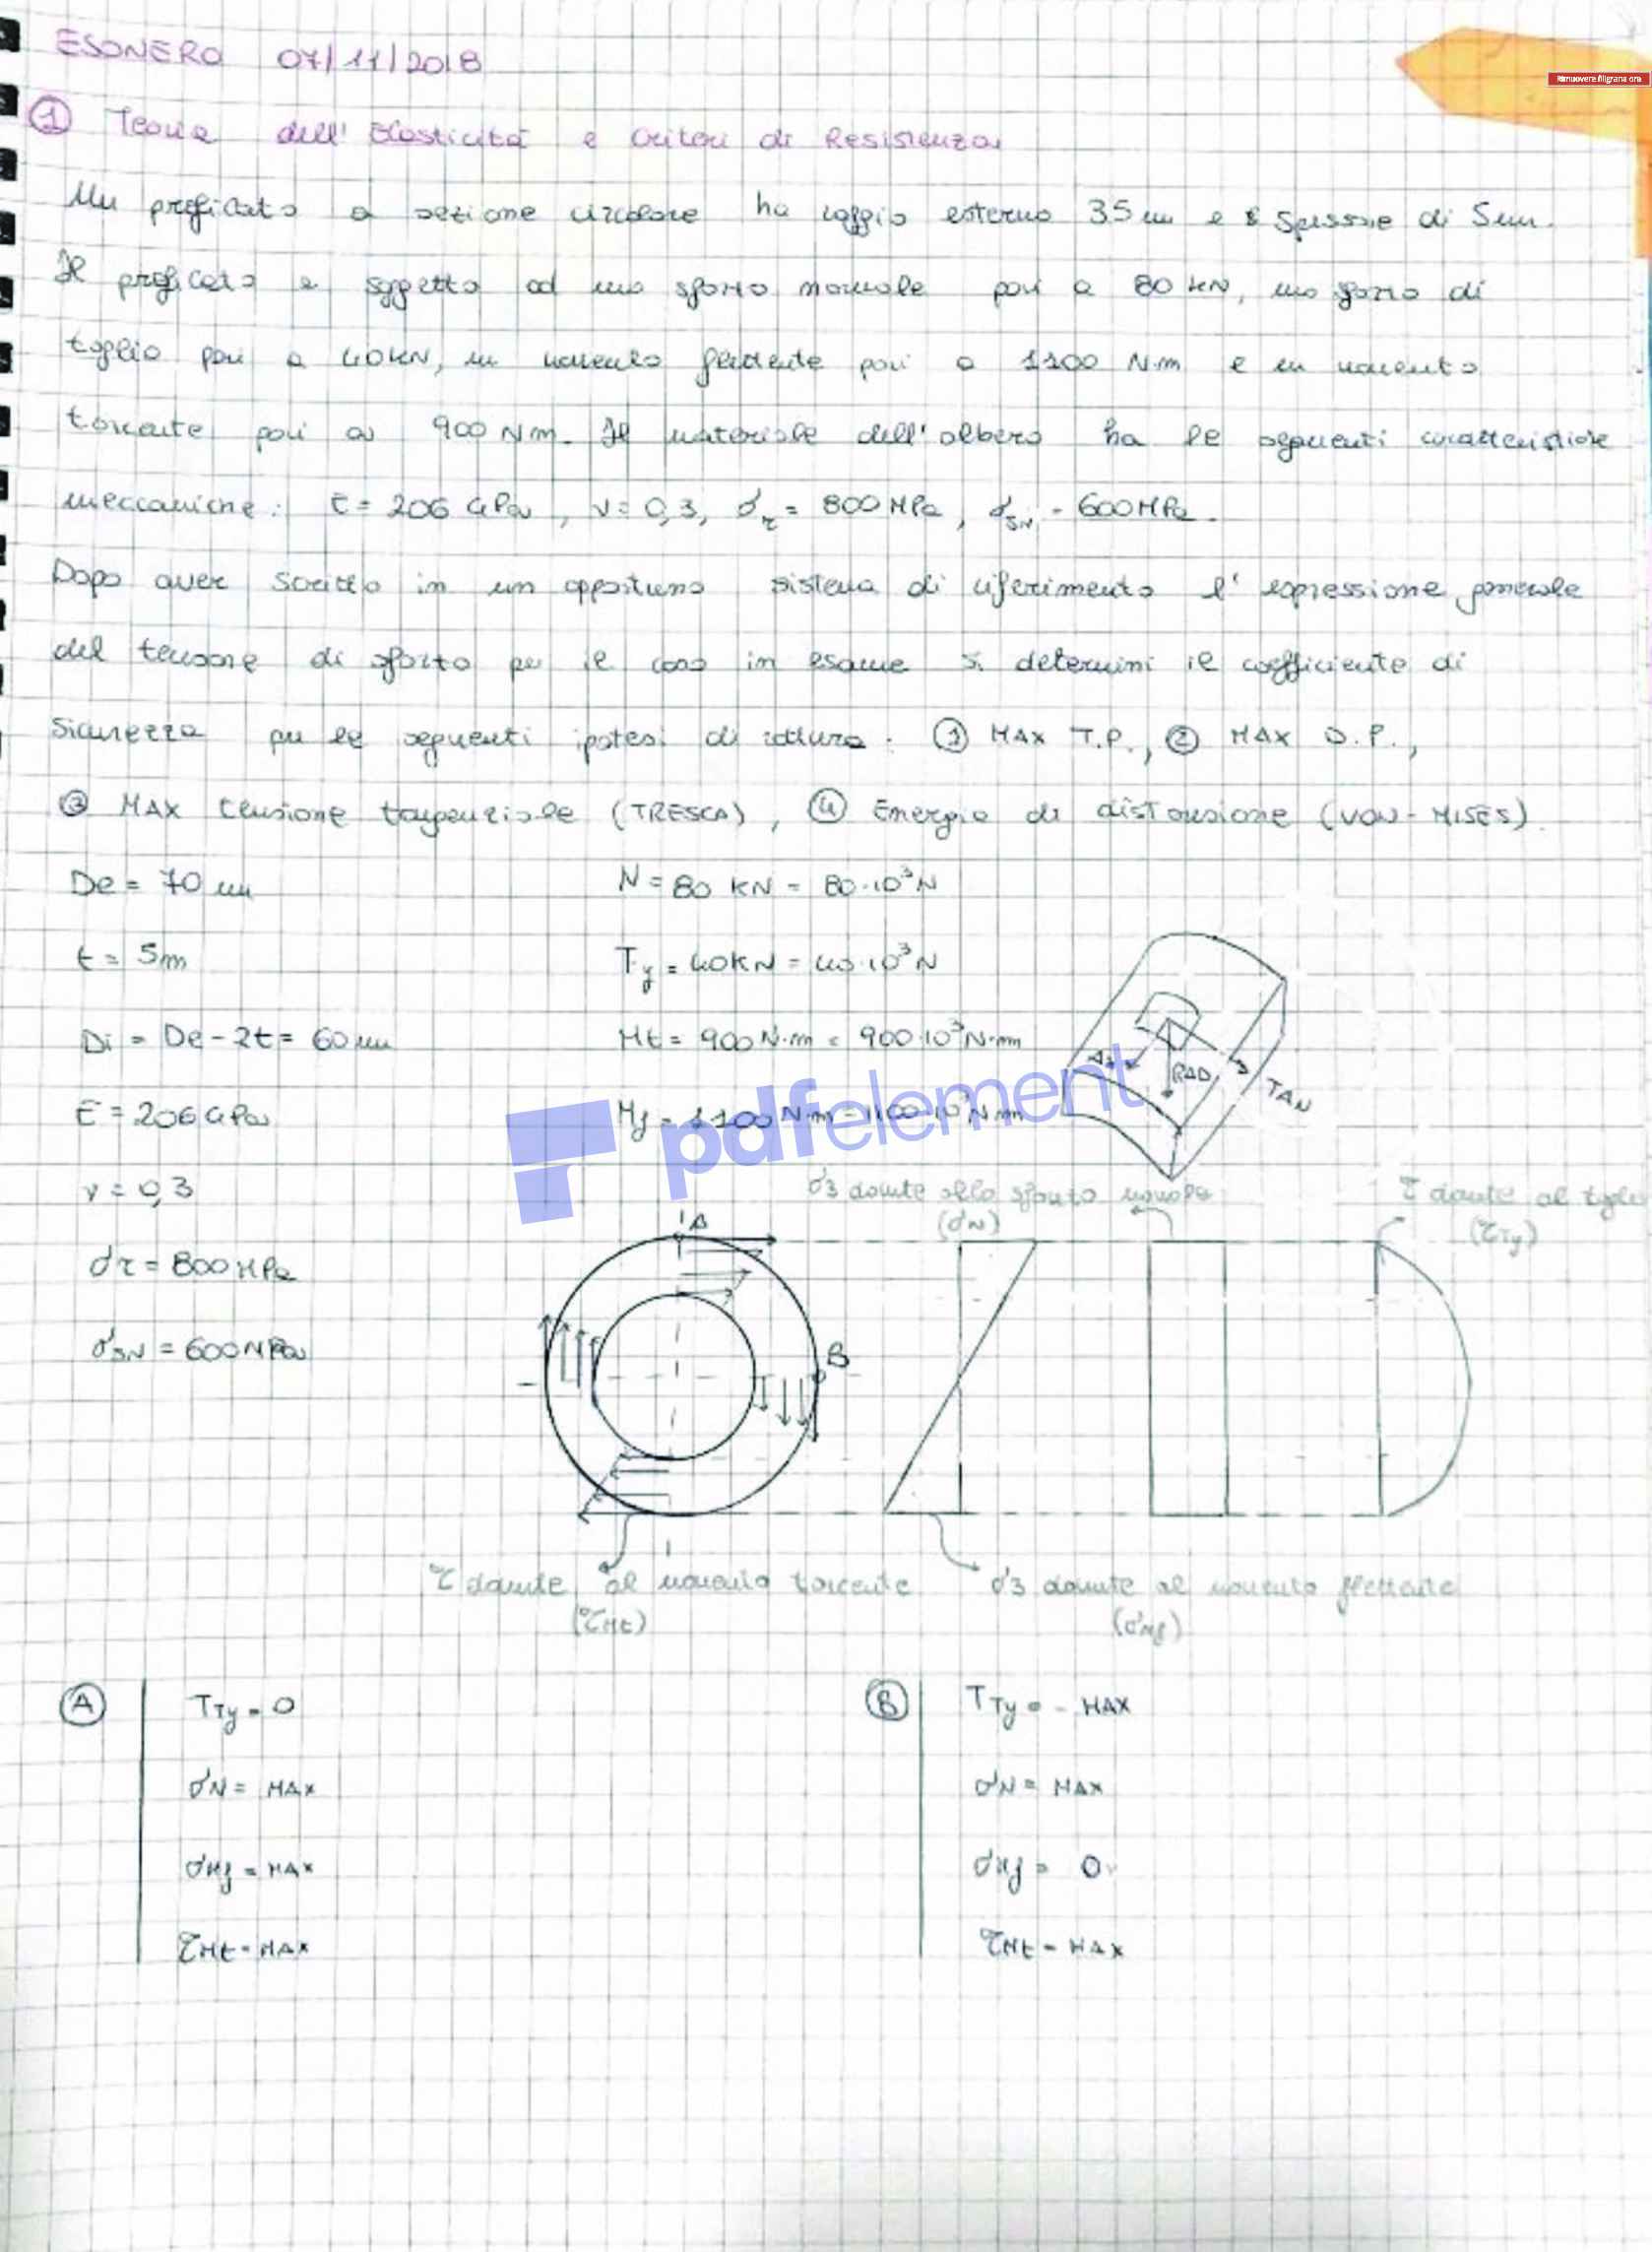 Rimuovere filigrana ora
ESONERO 07/11/2018
① Teoria dell'Elasticità e Criteri di Resistenza
Un profilato a sezione circolare ha raggio esterno 35 mm e spessore di 5mm.
Il profilato è soggetto ad uno sforzo normale pari a 80 kN, uno sforzo di
taglio pari a 40kN, un momento flettente pari a 1100 N·m e un momento
torcente pari a 900 Nm. Il materiale dell'albero ha le seguenti caratteristiche
meccaniche: E = 206 GPa, ν = 0,3, σr = 800 MPa, σSN = 600MPa.
Dopo aver scritto in un opportuno sistema di riferimento l'espressione generale
del tensore di sforzo per il caso in esame si determini il coefficiente di
sicurezza per le seguenti ipotesi di rottura: ① MAX T.P., ② MAX D.P.,
③ MAX tensione tangenziale (TRESCA), ④ Energia di distorsione (VON-MISES).
De = 70 mm N = 80 KN = 80·10³N
t = 5m Ty = 40KN = 40·10³N
Di = De - 2t = 60 mm Mt = 900 N·m = 900·10³N·mm
E = 206 GPa Mf = 1100 N·m = 1100·10³N·mm
RAD
TAN
pdfelement
ν = 0,3
σz dovute allo sforzo normale
(σN)
τ dovute al taglio
(τTy)
σr = 800 MPa
σSN = 600MPa
A
B
τ dovute al momento torcente σz dovute al momento flettente
(τMt) (σMf)
Ⓐ TTy = 0 Ⓑ TTy = - MAX
σN = MAX σN = MAX
σMf = MAX σMf = 0
τMt = MAX τMt = MAX